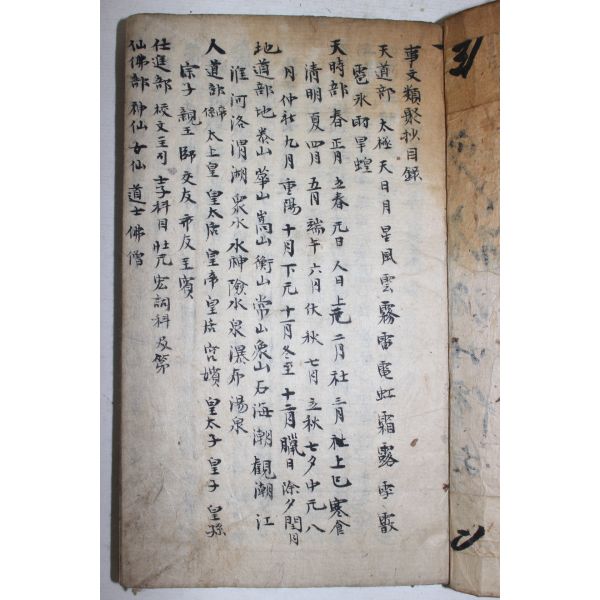 事文類聚抄目録
天道部 太極 天 日 月 星 風 雲 霧 雷 電 虹 霜 露 雪 霰
雹 氷 雨 旱 蝗
天時部 春 正月 立春 元日 人日 上元 二月 社 三月 社 上巳 寒食
清明 夏 四月 五月 端午 六月 伏 秋 七月 立秋 七夕 中元 八
月 仲社 九月 重陽 十月 下元 十一月 冬至 十二月 臘日 除夕 閏月
地道部 地 泰山 華山 嵩山 衡山 常山 衆山 石 海 潮 觀潮 江
淮 河 洛 渭 湖 衆水 水神 險水 泉 瀑布 湯泉
人道部 帝係 太上皇 皇太后 皇帝 皇后 宮嬪 皇太子 皇子 皇孫
宗子 親王 師 交友 朋友 主賓
仕進部 校文主司 士子 科目 壯元 宏詞科 及第
仙佛部 神仙 女仙 道士 佛 僧